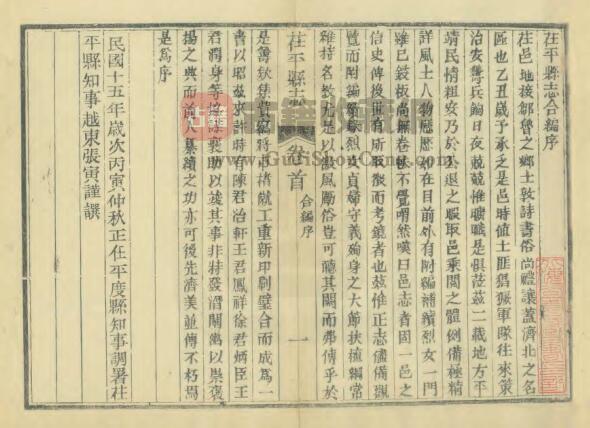 茌平縣志合編序
茌邑地接鄒魯之鄉士敦詩書俗尚禮讓蓋濟北之名
區也乙丑歲予承乏是邑時值土匪猖獗軍隊往來策
治安籌兵餉日夜兢兢惟曠職是懼莅茲二載地方平
靖民情粗安乃於公退之暇取邑乘閱之體例備極精
詳風土人物歷歷如在目前外有附編補續烈女一門
雖已鋟板尚無卷帙不覺喟然嘆曰邑志者固一邑之
信史傳後世有所取徵而考鏡者也茲惟正志儘備觀
覽而附編貞烈女貞婦守義殉身之大節扶植綱常
維持名教尤足以激風勵俗豈可聽其闕而弗傳乎於
茌平縣志 卷首 合編序 一
是籌欵集貲鳩將 楮就工重新印刷璧合而成為一
書以昭茲來許時有陳君治軒王君鳳祥徐君炳臣王
君潤身等 襄助以竣其事非特發潛闡幽以崇褒
揚之典而前人纂續之功亦可後先濟美並傳不朽焉
是為序
民國十五年歲次丙寅仲秋正任平度縣知事調署茌
平縣知事越東張寅謹譔
古籍
www.GujiShuGe.com